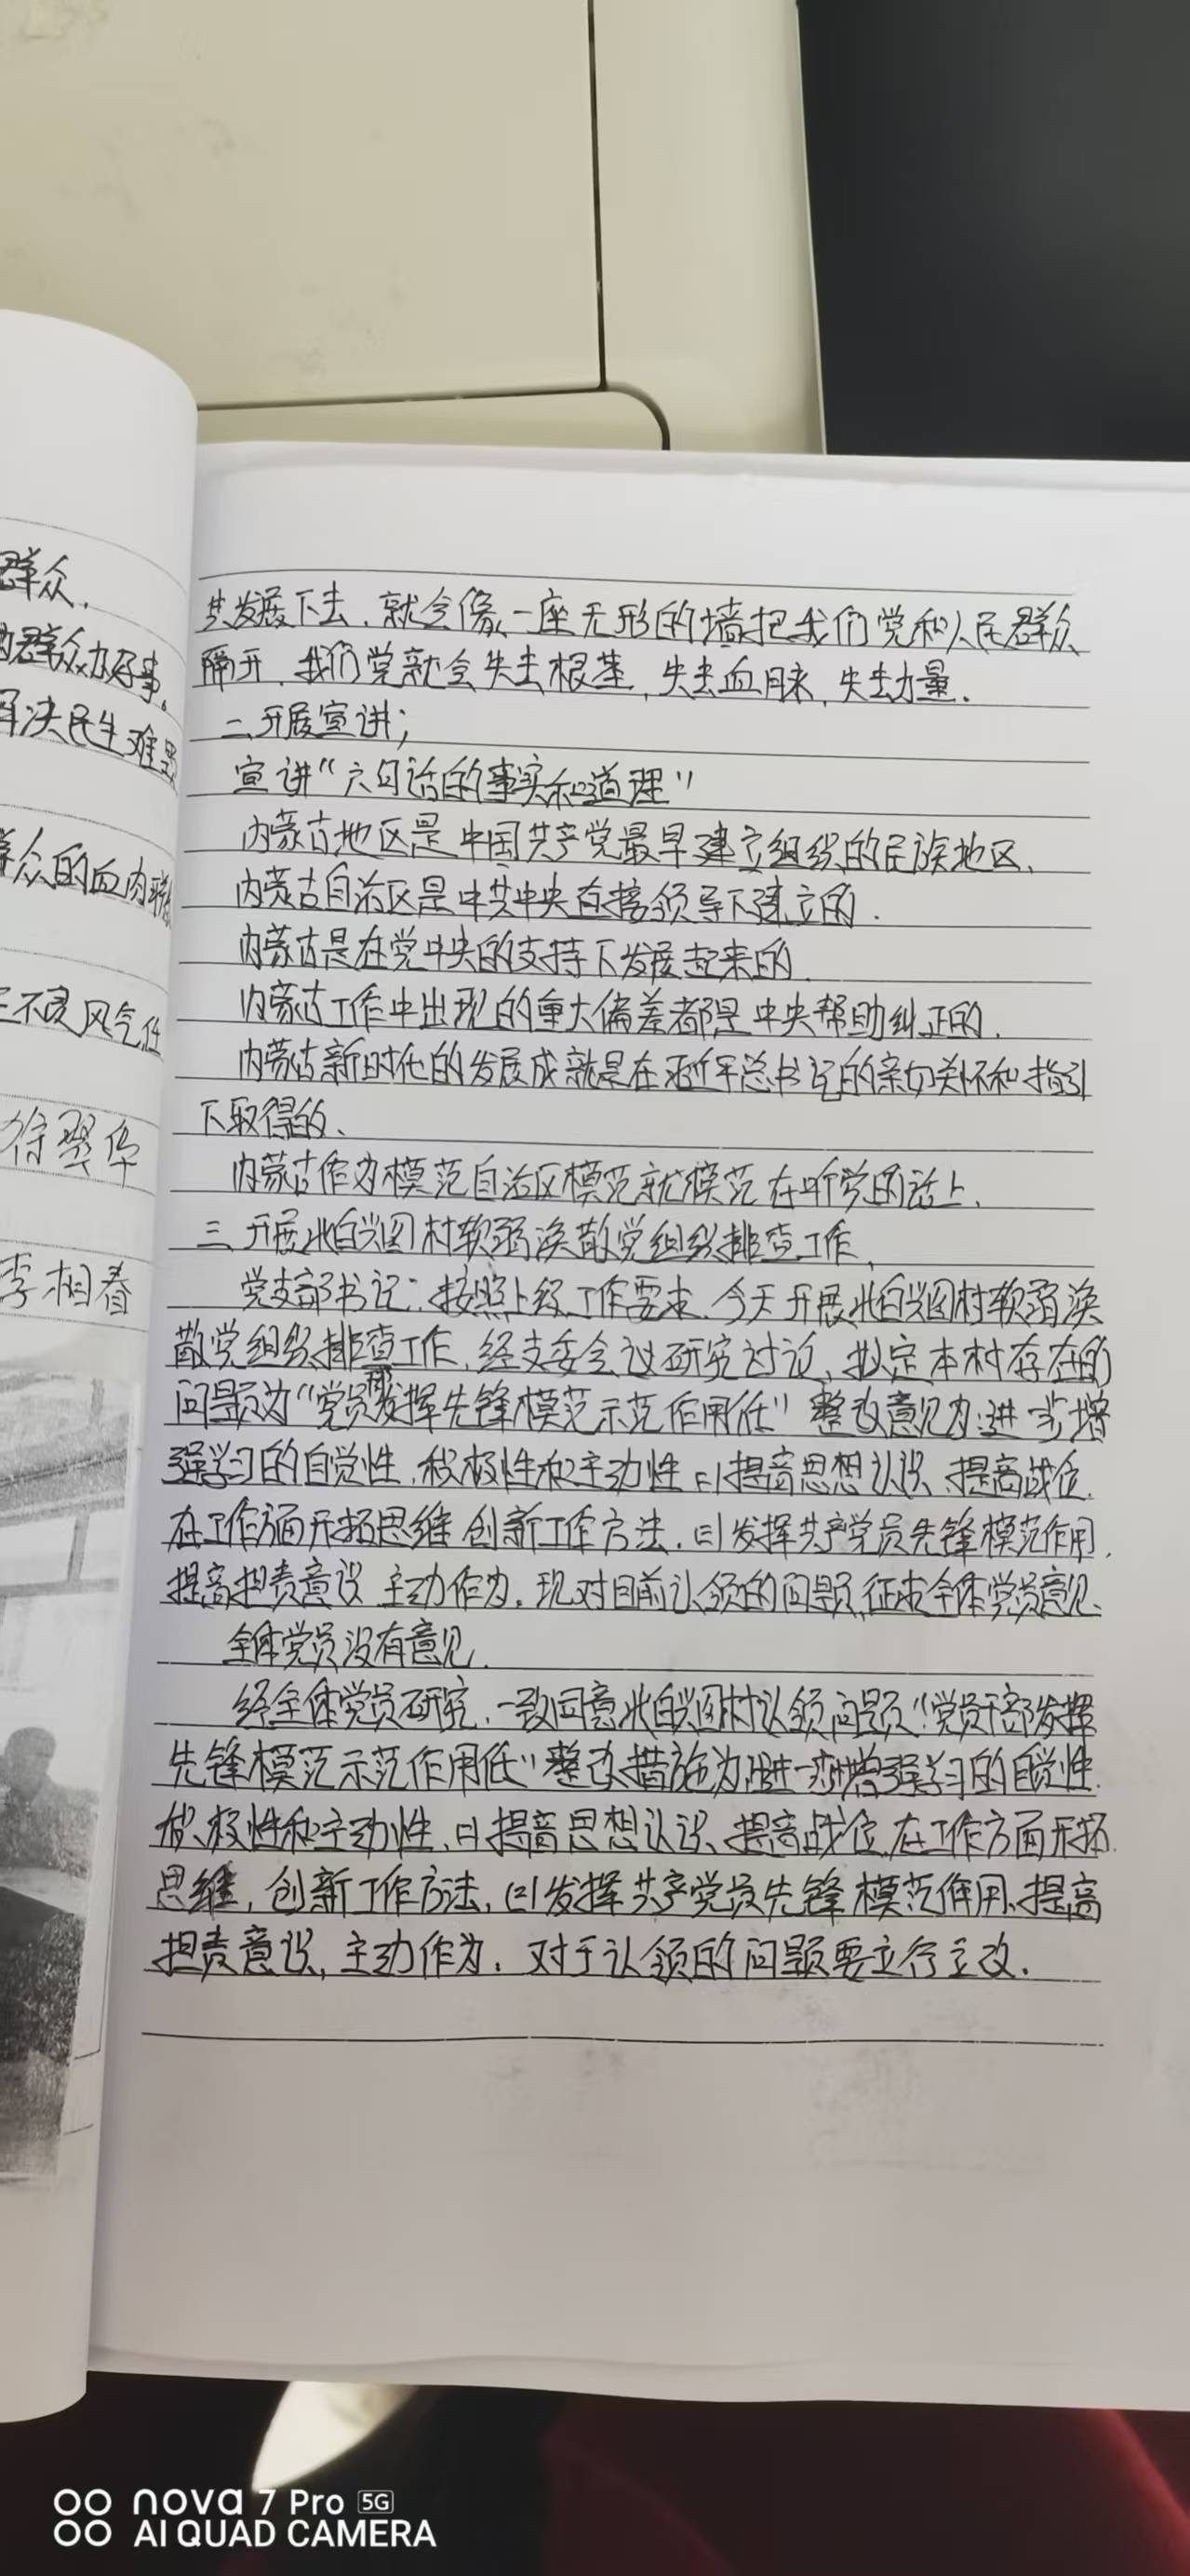 群众.
群众办好事。
解决民生难题
群众的血肉联
不良风气任
徐翠华
李相春
其发展下去.就会像一座无形的墙把我们党和人民群众
隔开.我们党就会失去根基,失去血脉,失去力量.
二、开展宣讲;
宣讲"六句话的事实和道理"
内蒙古地区是中国共产党最早建立组织的民族地区、
内蒙古自治区是中共中央直接领导下建立的.
内蒙古是在党中央的支持下发展起来的.
内蒙古工作中出现的重大偏差都是中央帮助纠正的.
内蒙古新时代的发展成就是在习近平总书记的亲切关怀和指引
下取得的、
内蒙古作为模范自治区模范就模范在听党的话上.
三.开展北白兴图村软弱涣散党组织排查工作.
党支部书记:按照上级工作要求.今天开展北白兴图村软弱涣
散党组织排查工作.经支委会议研究讨论,拟定本村存在的
问题为"党员发挥先锋模范示范作用低"整改意见为:进一步增
强学习的自觉性.积极性和主动性.(二)提高思想认识、提高战位.
在工作方面开拓思维 创新工作方法.(三)发挥共产党员先锋模范作用.
提高担责意识 主动作为.现对目前认领的问题,征求全体党员意见.
全体党员没有意见.
经全体党员研究.一致同意北白兴图村认领问题"党员干部发挥
先锋模范示范作用低"整改措施为:进一步增强学习的自觉性.
积极性和主动性.(二)提高思想认识、提高战位.在工作方面开拓
思维,创新工作方法,(三)发挥共产党员先锋模范作用、提高
担责意识,主动作为.对于认领的问题要立行立改.
nova 7 Pro 5G
AI QUAD CAMERA